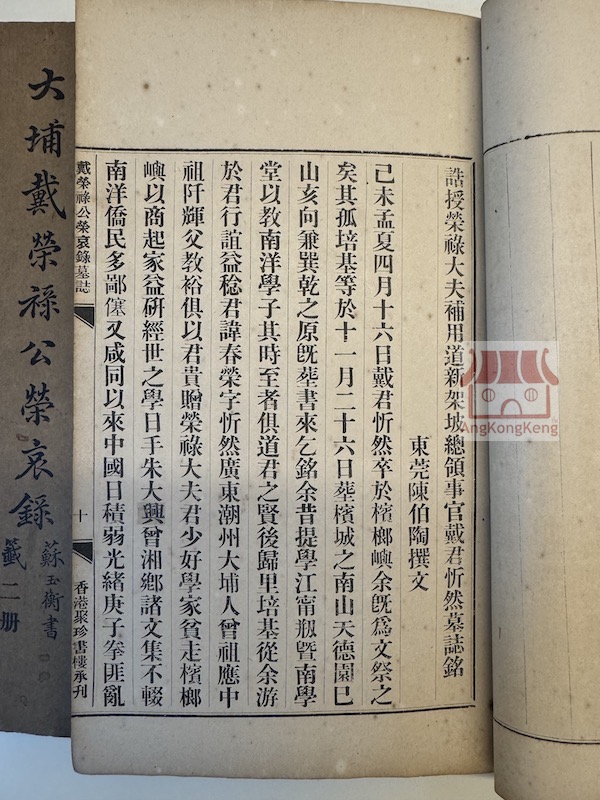 誥授榮祿大夫補用道新架坡總領事官戴君忻然墓誌銘
東莞陳伯陶撰文
己未孟夏四月十六日戴君忻然卒於檳榔嶼余旣爲文祭之
矣其孤培基等於十一月二十六日葬檳城之南山天德園巳
山亥向兼巽乾之原旣葬書來乞銘余昔提學江甯剏暨南學
堂以敎南洋學子其時至者俱道君之賢後歸里培基從余游
於君行誼益稔君諱春榮字忻然廣東潮州大埔人曾祖應中
祖阡輝父敎裕俱以君貴贈榮祿大夫君少好學家貧走檳榔
嶼以商起家益硏經世之學日手朱大興曾湘鄕諸文集不輟
南洋僑民多鄙僿又咸同以來中國日積弱光緖庚子拳匪亂
戴榮祿公榮哀錄墓誌
十
香港聚珍書樓承刊
大埔戴榮祿公榮哀錄
蘇玉衡書
籤二册
AngKongKeng